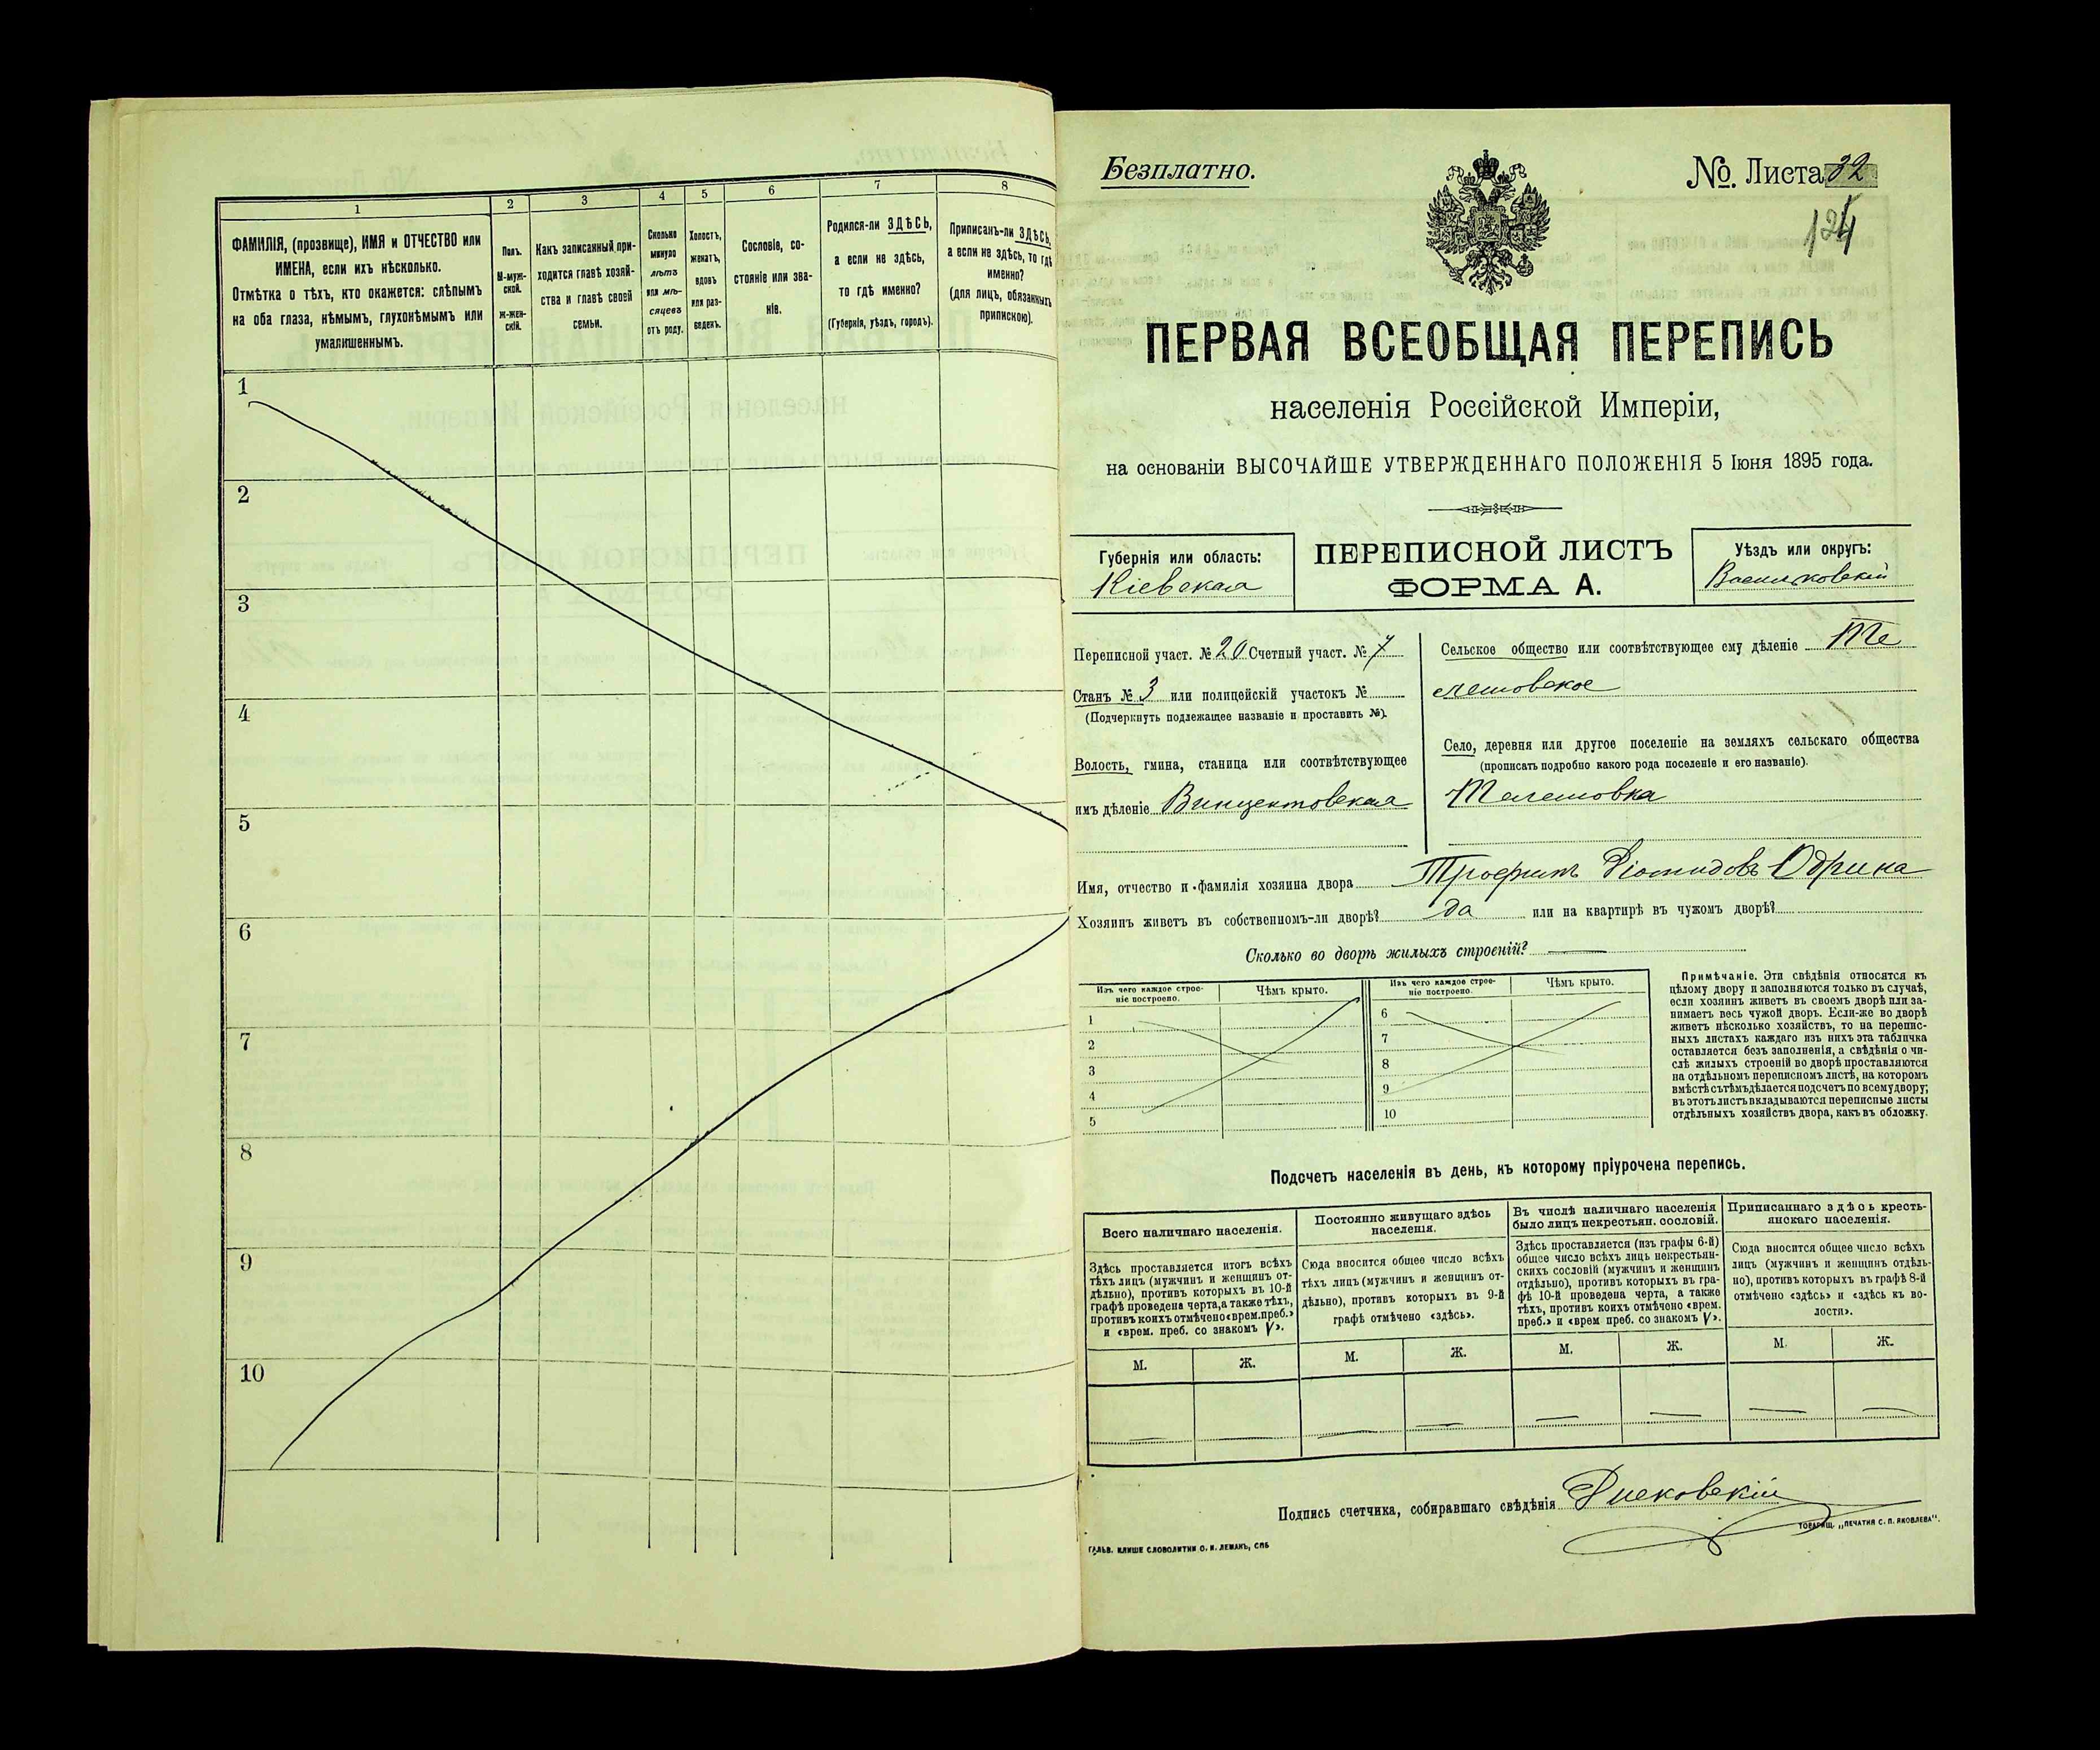 1
2
3
4
5
6
7
8
ФАМИЛІЯ, (прозвище), ИМЯ и ОТЧЕСТВО или
ИМЕНА, если ихъ нѣсколько.
Отмѣтка о тѣхъ, кто окажется: слѣпымъ
на оба глаза, нѣмымъ, глухонѣмымъ или
умалишеннымъ.
Полъ.
М-муж-
ской.
Ж-жен-
скій.
Какъ записанный при-
ходится главѣ хозяй-
ства и главѣ своей
семьи.
Сколько
минуло
лѣтъ
или мѣ-
сяцевъ
отъ роду.
Холостъ,
женатъ,
вдовъ
или раз-
веденъ.
Сословіе, со-
стояніе или зва-
ніе.
Родился-ли ЗДѢСЬ,
а если не здѣсь,
то гдѣ именно?
(Губернія, уѣздъ, городъ).
Приписанъ-ли ЗДѢСЬ,
а если не здѣсь, то гдѣ
именно?
(для лицъ, обязанныхъ
припискою).
1
2
3
4
5
6
7
8
9
10
Безплатно.
№. Листа 32
124
ПЕРВАЯ ВСЕОБЩАЯ ПЕРЕПИСЬ
населенія Россійской Имперіи,
на основаніи ВЫСОЧАЙШЕ УТВЕРЖДЕННАГО ПОЛОЖЕНІЯ 5 Іюня 1895 года.
Губернія или область:
Кіевская
ПЕРЕПИСНОЙ ЛИСТЪ
ФОРМА А.
Уѣздъ или округъ:
Васильковскій
Переписной участ. № 20 Счетный участ. № 7
Станъ № 3 или полицейскій участокъ №
(Подчеркнуть подлежащее названіе и проставить №).
Волость, гмина, станица или соотвѣтствующее
имъ дѣленіе Винцентовская
Сельское общество или соотвѣтствующее ему дѣленіе Те
лешовское
Село, деревня или другое поселеніе на земляхъ сельскаго общества
(прописать подробно какого рода поселеніе и его названіе).
Телешовка
Имя, отчество и фамилія хозяина двора Трофимъ Діомидовъ Одрина
Хозяинъ живетъ въ собственномъ-ли дворѣ? да или на квартирѣ въ чужомъ дворѣ?
Сколько во дворѣ жилыхъ строеній? —
Изъ чего каждое строе-
ніе построено.
Чѣмъ крыто.
Изъ чего каждое строе-
ніе построено.
Чѣмъ крыто.
1
2
3
4
5
6
7
8
9
10
Примѣчаніе. Эти свѣдѣнія относятся къ
цѣлому двору и заполняются только въ случаѣ,
если хозяинъ живетъ въ своемъ дворѣ или за-
нимаетъ весь чужой дворъ. Если-же во дворѣ
живетъ нѣсколько хозяйствъ, то на перепис-
ныхъ листахъ каждаго изъ нихъ эта табличка
оставляется безъ заполненія, а свѣдѣнія о чи-
слѣ жилыхъ строеній во дворѣ проставляются
на отдѣльномъ переписномъ листѣ, на которомъ
вмѣстѣ съ тѣмъ дѣлается подсчетъ по всему двору;
въ этотъ листъ вкладываются переписные листы
отдѣльныхъ хозяйствъ двора, какъ въ обложку.
Подсчетъ населенія въ день, къ которому пріурочена перепись.
Всего наличнаго населенія.
Здѣсь проставляется итогъ всѣхъ
тѣхъ лицъ (мужчинъ и женщинъ от-
дѣльно), противъ которыхъ въ 10-й
графѣ проведена черта, а также тѣхъ,
противъ коихъ отмѣчено «врем. преб.»
и «врем. преб. со знакомъ V».
М. Ж.
Постоянно живущаго здѣсь
населенія.
Сюда вносится общее число всѣхъ
тѣхъ лицъ (мужчинъ и женщинъ от-
дѣльно), противъ которыхъ въ 9-й
графѣ отмѣчено «здѣсь».
М. Ж.
Въ числѣ наличнаго населенія
было лицъ некрестьян. сословій.
Здѣсь проставляется (изъ графы 6-й)
общее число всѣхъ лицъ некрестьян-
скихъ сословій (мужчинъ и женщинъ
отдѣльно), противъ которыхъ въ гра-
фѣ 10-й проведена черта, а также
тѣхъ, противъ коихъ отмѣчено «врем.
преб.» и «врем преб. со знакомъ V».
М. Ж.
Приписаннаго здѣсь кресть-
янскаго населенія.
Сюда вносится общее число всѣхъ
лицъ (мужчинъ и женщинъ отдѣль-
но), противъ которыхъ въ графѣ 8-й
отмѣчено «здѣсь» и «здѣсь къ во-
лости».
М. Ж.
— — — — — — — —
Подпись счетчика, собиравшаго свѣдѣнія
ГАЛЬВ. КЛИШЕ СЛОВОЛИТНИ О. И. ЛЕМАНЪ, СПБ
ТОВАРИЩ. „ПЕЧАТНЯ С. П. ЯКОВЛЕВА".